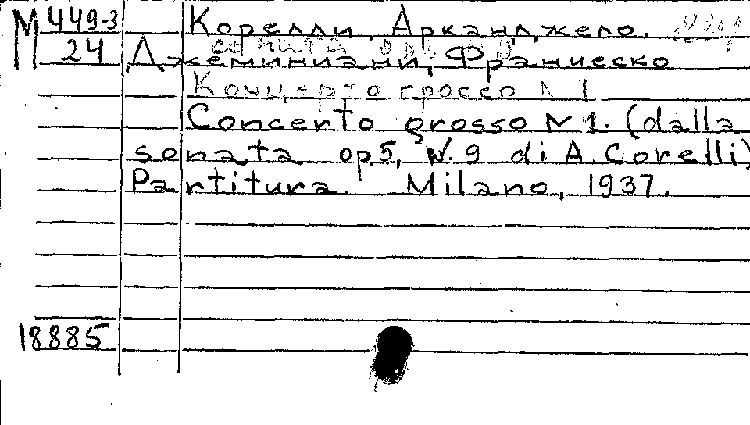 М 449-3 Корелли, Арканджело.
24 Джеминиани, Франческо
Концерто гроссо N 1
Concerto grosso N 1. (dalla
sonata op.5, N.9 di A. Corelli)
Partitura. Milano, 1937.
18885